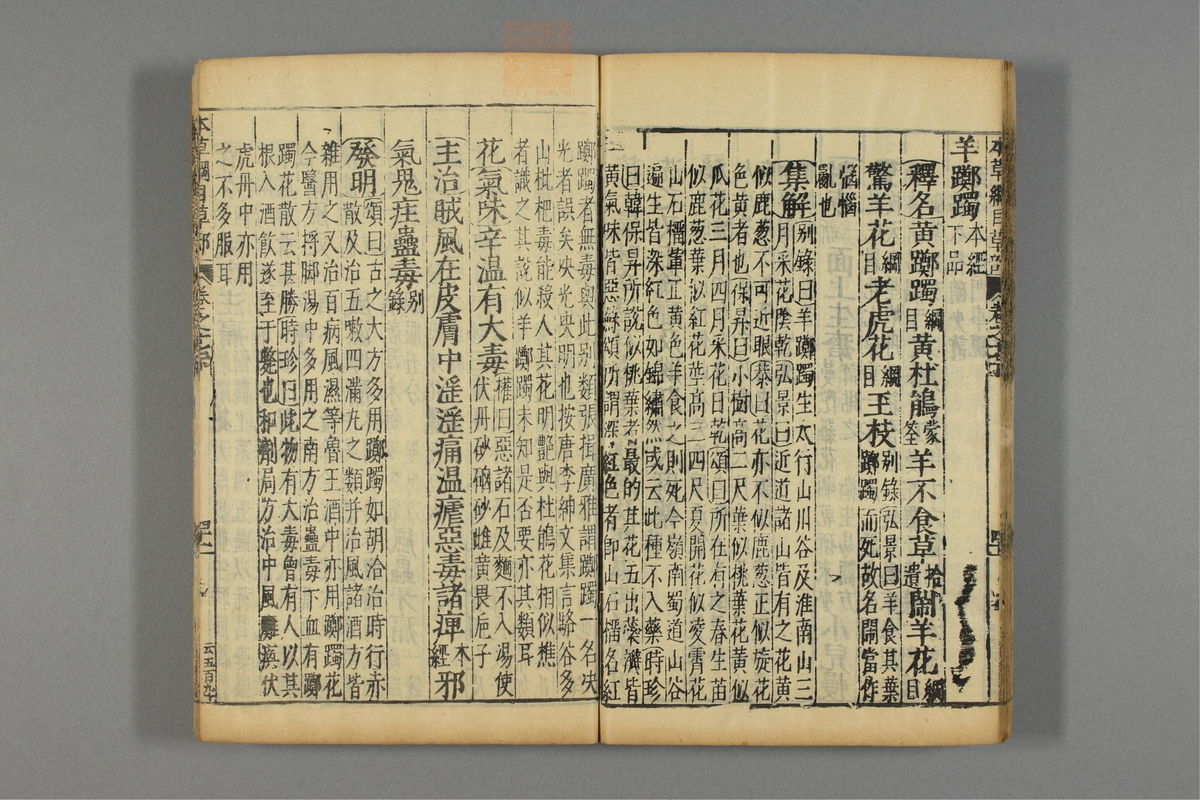 羊躑躅本經下品
釋名黃躑躅綱目黃杜鵑蒙筌羊不食草拾遺鬧羊花綱目
驚羊花綱目老虎花綱目玉枝別錄弘景曰羊食其葉躑躅而死故名鬧當作
惱惱亂也
集解別錄曰羊躑躅生太行山川谷及淮南山三
月采花陰乾弘景曰近道諸山皆有之花黃
似鹿葱不可近眼恭曰花亦不似鹿葱正似旋花
色黃者也保昇曰小樹高二尺葉似桃葉花黃似
瓜花三月四月采花日乾頌曰所在有之春生苗
似鹿葱葉似紅花莖高三四尺夏開花似凌霄花
山石榴輩正黃色羊食之則死今嶺南蜀道山谷
遍生皆深紅色如錦繡然或云此種不入藥時珍
曰韓保昇所說似桃葉者最的其花五出蕊瓣皆
黃氣味皆惡蘇頌所謂深紅色者即山石榴名紅
躑躅者無毒與此別類張揖廣雅謂躑躅一名決
光者誤矣決光決明也按唐李紳文集言駱谷多
山枇杷毒能殺人其花明艷與杜鵑花相似樵
者識之其說似羊躑躅未知是否要亦其類耳
花氣味辛溫有大毒權曰惡諸石及麵不入湯使伏丹砂硇砂雌黃畏巵子
主治賊風在皮膚中淫淫痛溫瘧惡毒諸痺本經邪
氣鬼疰蠱毒別錄
發明頌曰古之大方多用躑躅如胡洽治時行赤
散及治五嗽四滿丸之類并治風諸酒方皆
雜用之又治百病風濕等魯王酒中亦用躑躅花
今醫方捋脚湯中多用之南方治蠱毒下血有躑
躅花散云甚勝時珍曰此物有大毒曾有人以其
根入酒飲遂至于斃也和劑局方治中風癱瘓伏
虎丹中亦用
之不多服耳
本草綱目草部